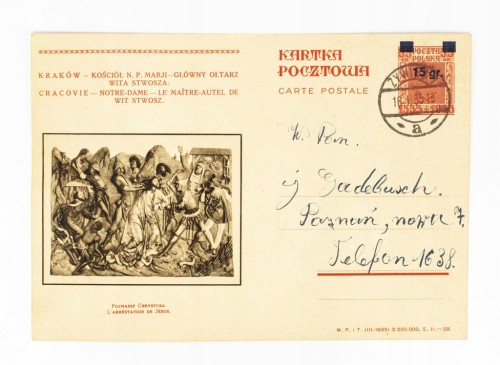 KRAKÓW – KOŚCIÓŁ N. P. MARJI–GŁÓWNY OŁTARZ
WITA STWOSZA.
CRACOVIE – NOTRE-DAME – LE MAÎTRE-AUTEL DE
WIT STWOSZ.
POJMANIE CHRYSTUSA.
L'ARRESTATION DE JÉSUS.
KARTKA
POCZTOWA
CARTE POSTALE
POCZTA
POLSKA
15 gr.
a
W. Pan.
J. Gadebusch.
Poznań, nowa 7.
Telefon 1638.
M. P. i T. (III-1935) 2.200.000. S. II.–28.